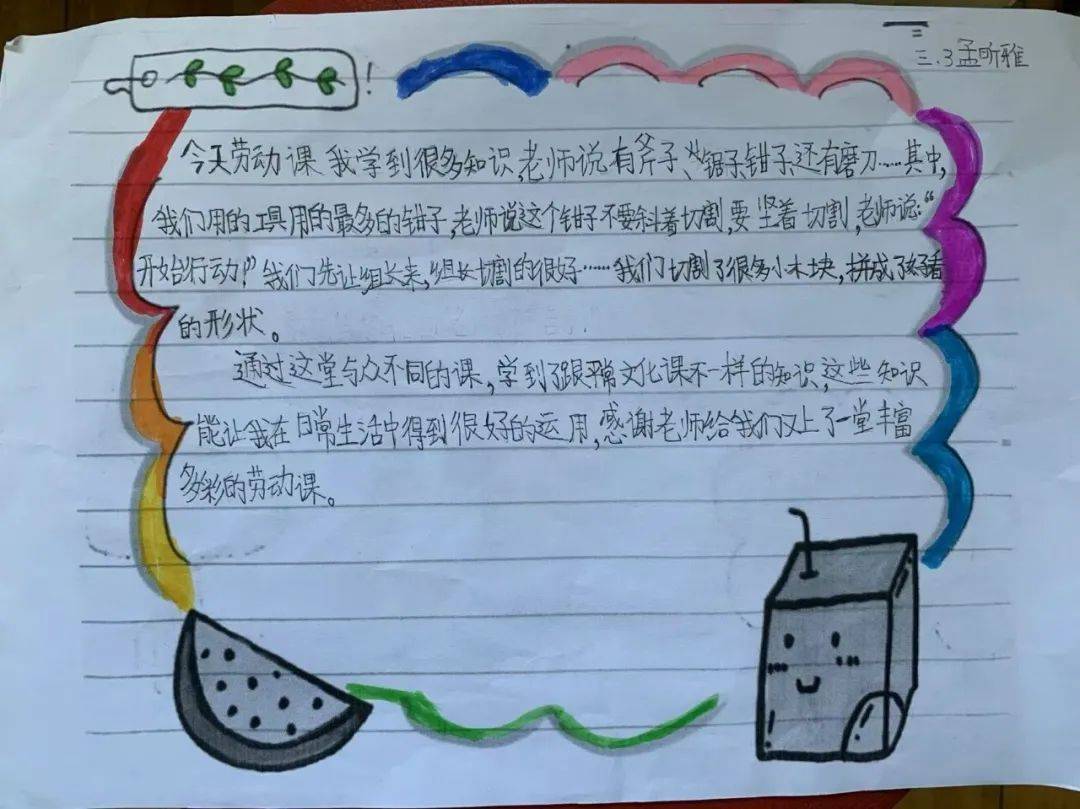 三.3孟昕雅
!
今天劳动课我学到很多知识,老师说有斧子、锯子、钳子、还有磨刀……其中,
我们用的工具用的最多的钳子,老师说这个钳子不要斜着切割,要坚着切割,老师说:“
开始行动!”我们先让组长来,组长切割的很好……我们切割了很多小木块,拼成了
的形状。
通过这堂与众不同的课,学到了跟平常文化课不一样的知识,这些知识
能让我在日常生活中得到很好的运用,感谢老师给我们又上了一堂丰富
多彩的劳动课。